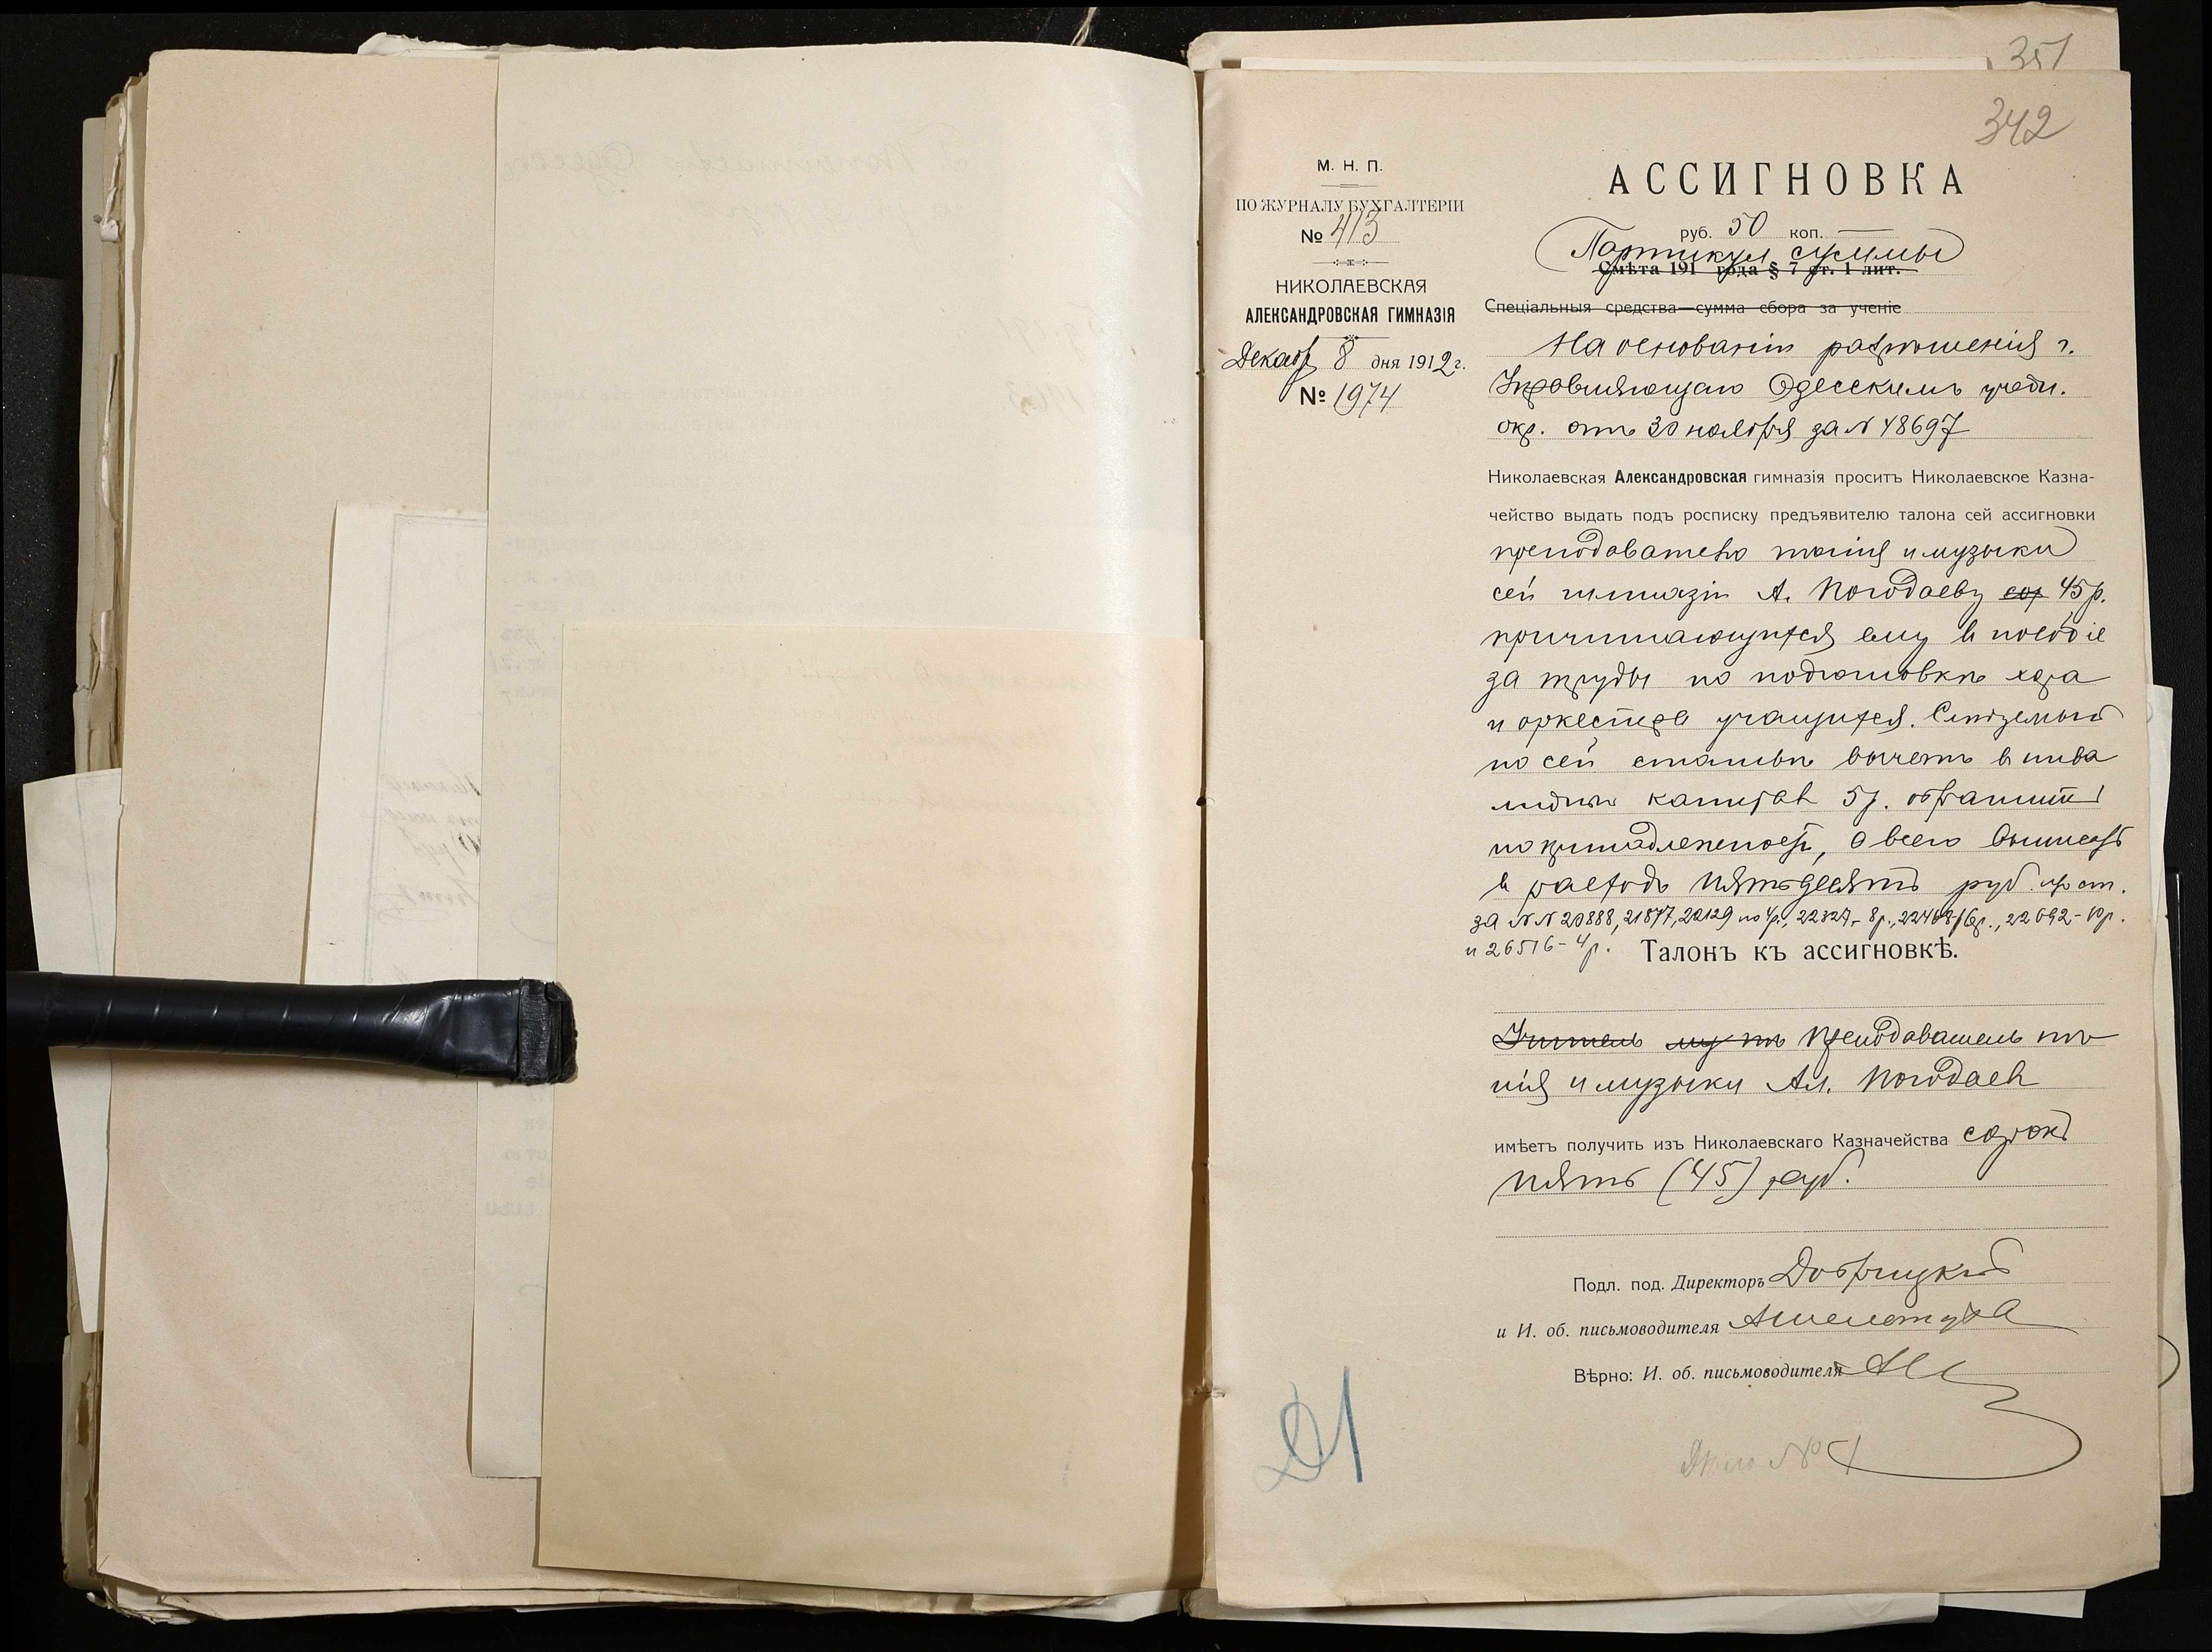 351
342
М. Н. П.
ПО ЖУРНАЛУ БУХГАЛТЕРІИ
№ 413
НИКОЛАЕВСКАЯ
АЛЕКСАНДРОВСКАЯ ГИМНАЗІЯ
Декабр 8 дня 1912 г.
№ 1974
АССИГНОВКА
руб. 50 коп.
Партикул суммы
Смѣта 191 года § 7 ст. 1 лит.
Спеціальныя средства—сумма сбора за ученіе
На основаніи разрѣшенія г.
Управляющаго Одесскимъ учебн.
окр. отъ 30 ноября за N 48697
Николаевская Александровская гимназія проситъ Николаевское Казна-
чейство выдать подъ росписку предъявителю талона сей ассигновки
преподавателю пѣнія и музыки
сей гимназіи А. Погодаеву сор 45 р.
причитающихся ему в пособіе
за труды по подготовкѣ хора
и оркестра учащихся.
по сей вычетъ в инва
лидный капитал 5 р. обратить
по принадлежности, а всего выписать
в расходъ пятьдесятъ руб. по от.
за N N 20888, 21877, 22129 по 4р., 22327- 8р., 22692- 10р.
и 26516- 4р.
Талонъ къ ассигновкѣ.
Учитель преподаватель пѣ
нія и музыки Ал. Погодаев
имѣетъ получить изъ Николаевскаго Казначейства сорокъ
пять (45) руб.
Подл. под. Директоръ Добрицкій
и И. об. письмоводителя
Вѣрно: И. об. письмоводителя
Д1
Дѣло № 1